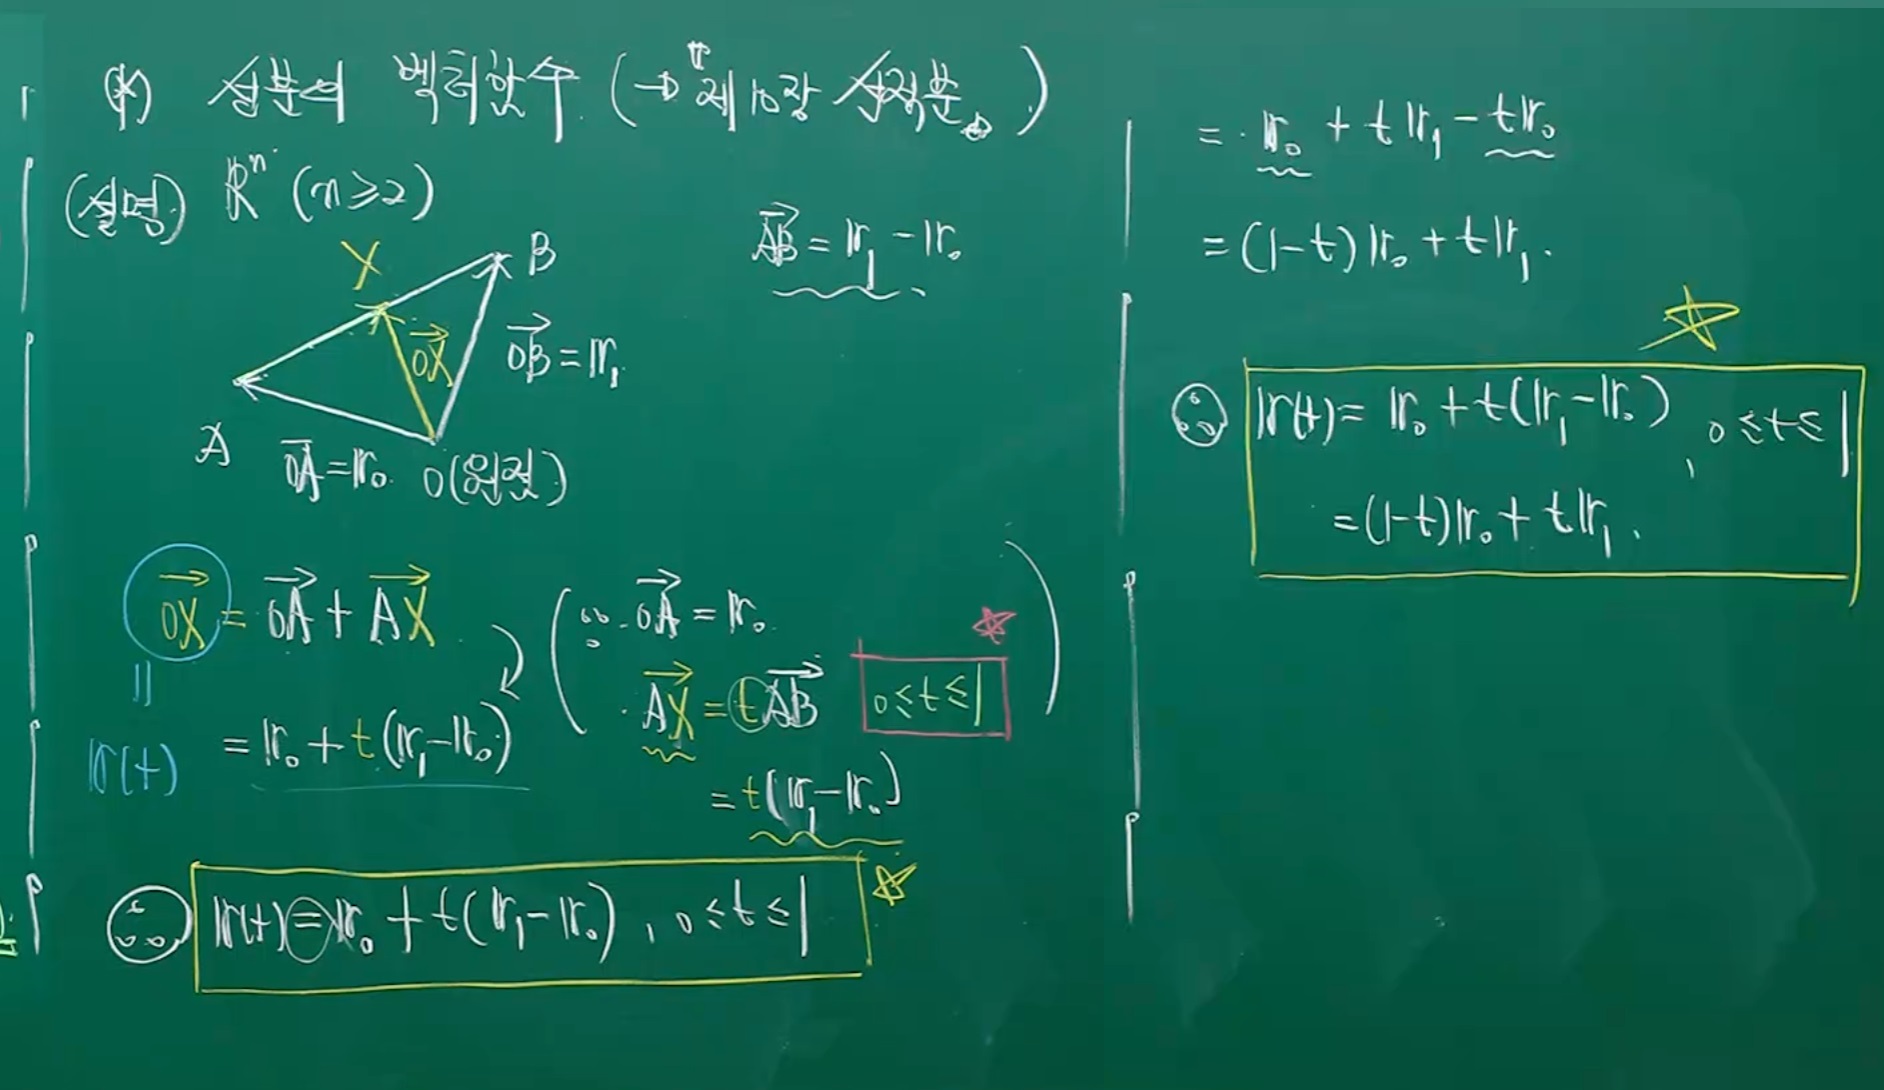 (*) 선분의 벡터함수 (→ 제10장 선적분)
(설명) ℝⁿ (n≥2)
X
B
OX⃗
OB⃗ = 𝕣₁
A
OA⃗ = 𝕣₀
O(원점)
AB⃗ = 𝕣₁ - 𝕣₀
OX⃗ = OA⃗ + AX⃗
||
𝕣(t)
= 𝕣₀ + t(𝕣₁-𝕣₀)
( ∵ · OA⃗ = 𝕣₀
· AX⃗ = tAB⃗ 0≤t≤1 )
= t(𝕣₁-𝕣₀)
∴ 𝕣(t) = 𝕣₀ + t(𝕣₁-𝕣₀), 0≤t≤1
= 𝕣₀ + t𝕣₁ - t𝕣₀
= (1-t)𝕣₀ + t𝕣₁.
∴ 𝕣(t) = 𝕣₀ + t(𝕣₁-𝕣₀), 0≤t≤1
= (1-t)𝕣₀ + t𝕣₁.